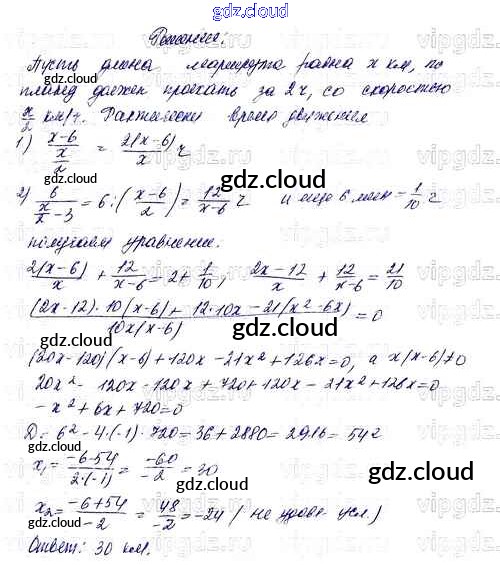 gdz.cloud
Решение:
Пусть длина маршрута равна x км, по
gdz.cloud
плану должен проехать за 2 ч, со скоростью
x/2 км/ч. Фактически время движения
1) (x-6)/(x/2) = 2(x-6)/x ч
gdz.cloud
2) 6/(x/2 - 3) = 6:((x-6)/2) = 12/(x-6) ч и еще 6 мин = 1/10 ч
получаем уравнение.
gdz.cloud
2(x-6)/x + 12/(x-6) = 2 1/10; (2x-12)/x + 12/(x-6) = 21/10
((2x-12)·10(x-6) + 12·10x - 21(x²-6x))/(10x(x-6)) = 0
gdz.cloud
(20x-120)(x-6)+120x-21x²+126x=0, а x(x-6)≠0
20x²-120x-120x+720+120x-21x²+126x=0
-x²+6x+720=0
gdz.cloud
D=6²-4·(-1)·720=36+2880=2916=54²
x₁=(-6-54)/(2·(-1))=(-60)/(-2)=30
gdz.cloud
gdz.cloud
x₂=(-6+54)/(-2)=48/(-2)=-24 (не удовл. усл.)
Ответ: 30 км.
gdz.cloud